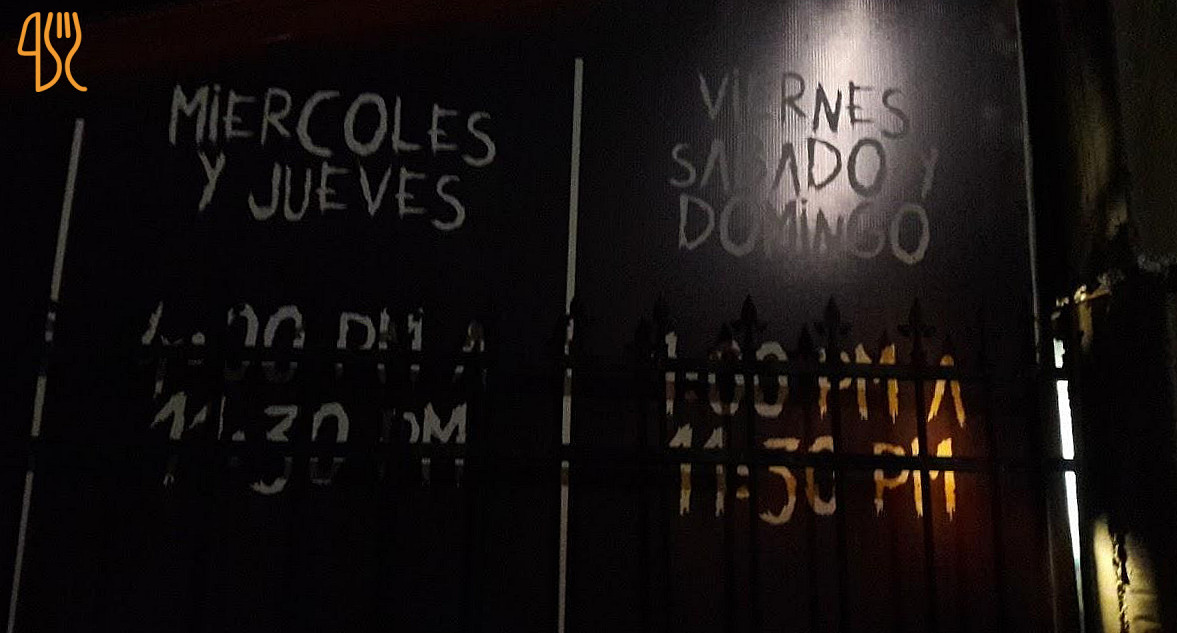 MiERCOLES
Y JUEVES
4:00 PM A
11:30 PM
ViERNES
SABADO Y
DOMiNGO
1:00 PM A
11:30 PM